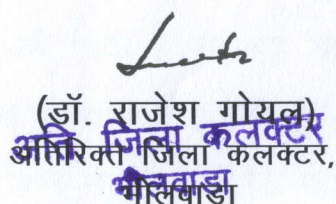 (डॉ. राजेश गोयल)
अति जिला कलक्टर
अतिरिक्त जिला कलेक्टर,
भीलवाड़ा
भीलवाड़ा